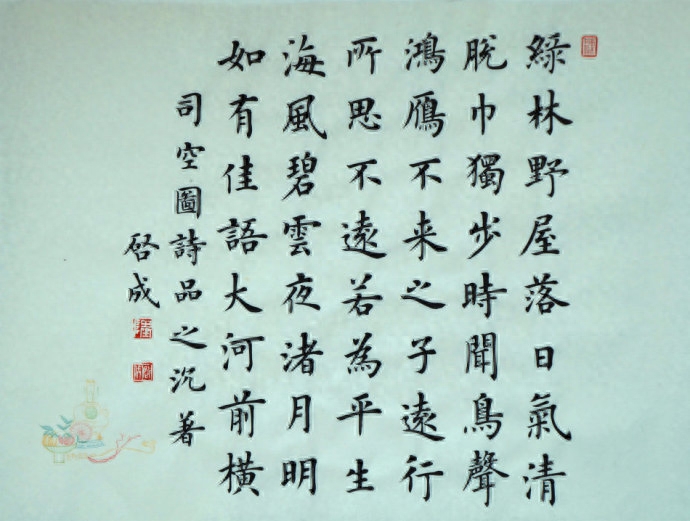 綠林野屋落日氣清
脫巾獨步時聞鳥聲
鴻鴈不来之子遠行
所思不遠若為平生
海風碧雲夜渚月明
如有佳語大河前橫
司空圖詩品之沉著
啓成